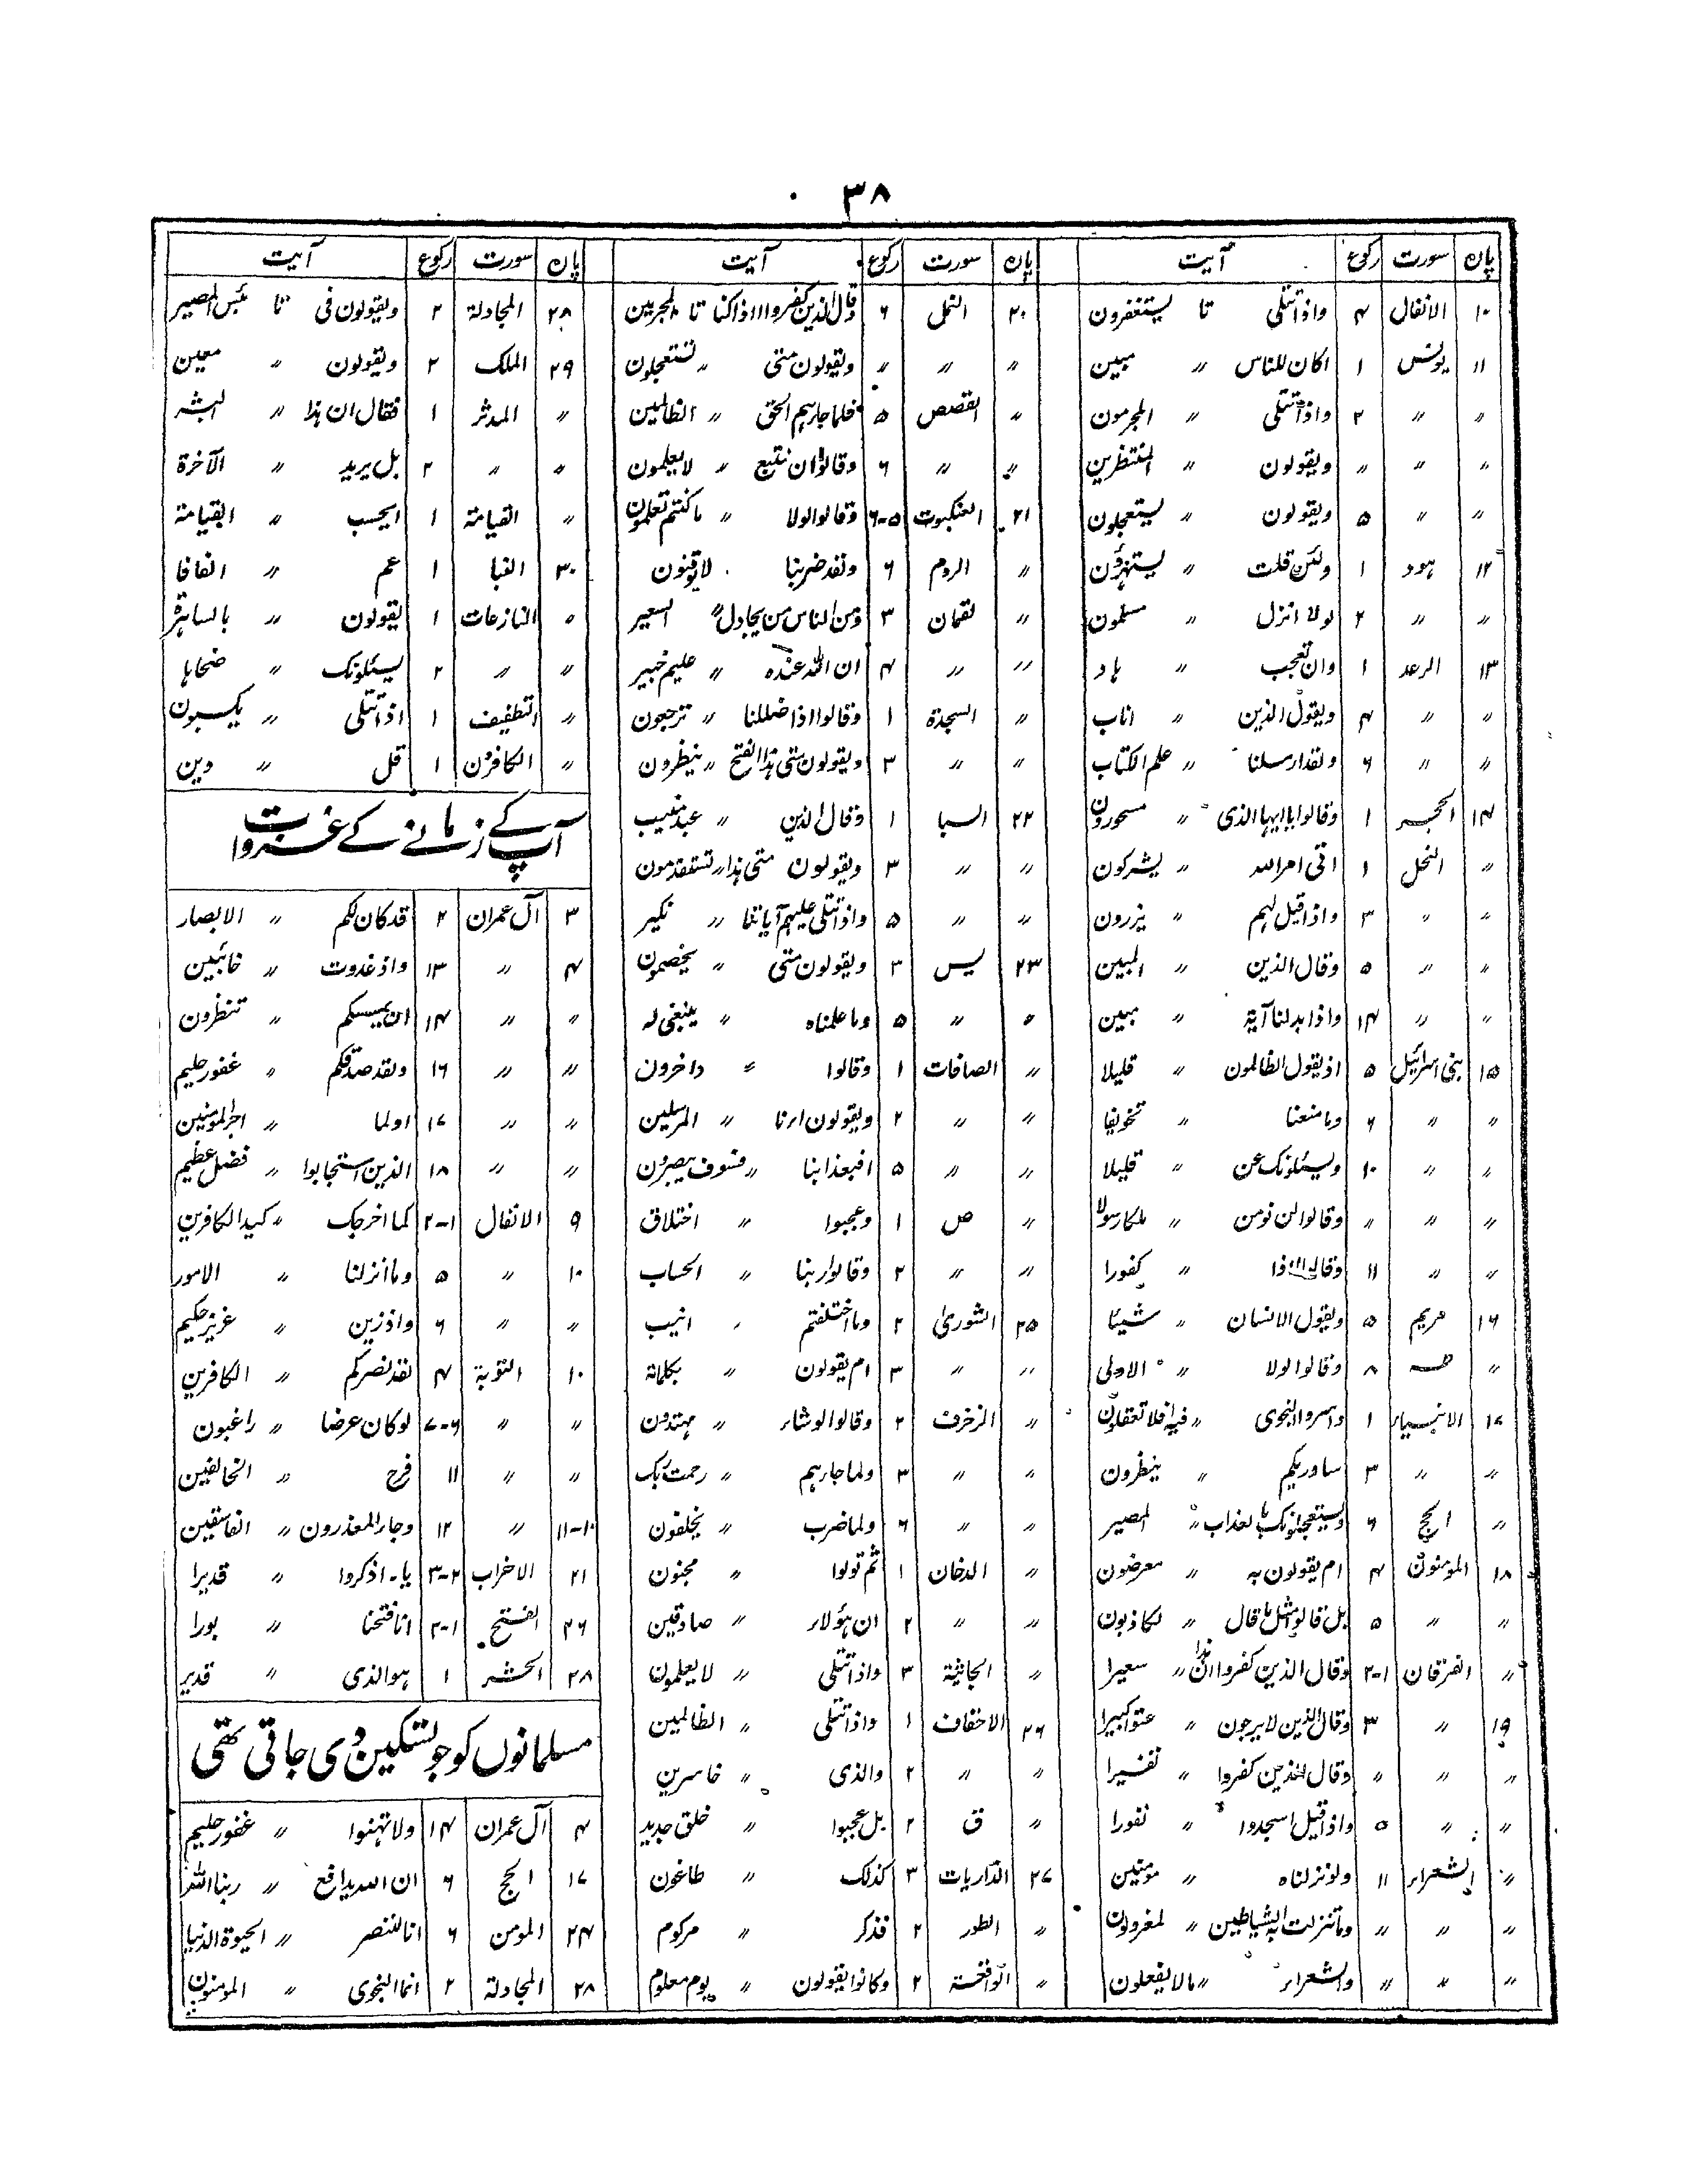 ۳۸
پارہ سورت رکوع آیت
۱۰ الانفال ۴ واذا تتلی تا یستغفرون
۱۱ یونس ۱ اکان للناس 〃 مبین
〃 〃 ۲ واذا تتلی 〃 المجرمون
〃 〃 〃 ویقولون 〃 المنتظرین
〃 〃 ۵ ویقولون 〃 یستعجلون
۱۲ ہود ۱ ولئن قلت 〃 یستہزؤن
〃 〃 ۲ لولا انزل 〃 مسلمون
۱۳ الرعد ۱ وان تعجب 〃 ہاد
〃 〃 ۴ ویقول الذین 〃 اناب
〃 〃 ۶ ولقد ارسلنا 〃 علم الکتاب
۱۴ الحجر ۱ وقالوا یاایہا الذی 〃 مسحورون
〃 النحل ۱ اتی امر اللہ 〃 یشرکون
〃 〃 ۳ واذا قیل لہم 〃 یزرون
〃 〃 ۵ وقال الذین 〃 المبین
〃 〃 ۱۴ واذا بدلنا آیۃ 〃 مبین
۱۵ بنی اسرائیل ۵ اذ یقول الظالمون 〃 قلیلا
〃 〃 ۶ وما منعنا 〃 تخویفا
〃 〃 ۱۰ ویسئلونک عن 〃 قلیلا
〃 〃 〃 وقالوا لن نومن 〃 ملکا رسولا
〃 〃 ۱۱ وقالوا ااذا 〃 کفورا
۱۶ مریم ۵ ویقول الانسان 〃 شیئا
〃 طہ ۸ وقالوا لولا 〃 الاولی
۱۷ الانبیاء ۱ واسروا النجوی 〃 فیہ افلا تعقلون
〃 〃 ۳ ساوریکم 〃 ینظرون
〃 الحج ۶ ویستعجلونک بالعذاب 〃 المصیر
۱۸ المومنون ۴ ام یقولون بہ 〃 معرضون
〃 〃 ۵ بل قالوا مثل ما قال 〃 لکاذبون
〃 الفرقان ۱-۲ وقال الذین کفروا ان ہذا 〃 سعیرا
۱۹ 〃 ۳ وقال الذین لا یرجون 〃 عتوا کبیرا
〃 〃 〃 وقال الذین کفروا 〃 تفسیرا
〃 〃 ۵ واذا قیل اسجدوا 〃 نفورا
〃 الشعراء ۱۱ ولو نزلناہ 〃 مومنین
〃 〃 〃 وما تنزلت بہ الشیاطین 〃 لمعزولون
〃 〃 〃 والشعراء 〃 مالا یفعلون
پارہ سورت رکوع آیت
۲۰ النمل ۶ وقال الذین کفروا ااذا کنا تا المجرمین
〃 〃 〃 ویقولون متی 〃 تستعجلون
〃 القصص ۵ فلما جاءہم الحق 〃 الظالمین
〃 〃 ۶ وقالوا ان نتبع 〃 لا یعلمون
۲۱ العنکبوت ۵-۶ وقالوا لولا 〃 ما کنتم تعلمون
〃 الروم ۶ ولقد ضربنا لا یوقنون
〃 لقمان ۳ ومن الناس من یجادل 〃 السعیر
〃 〃 ۴ ان اللہ عندہ 〃 علیم خبیر
〃 السجدۃ ۱ وقالوا ااذا ضللنا 〃 ترجعون
〃 〃 ۳ ویقولون متی ہذا الفتح 〃 ینظرون
۲۲ السبا ۱ وقال الذین 〃 عبد منیب
〃 〃 ۳ ویقولون متی ہذا 〃 تستقدمون
〃 〃 ۵ واذا تتلی علیہم آیاتنا 〃 نکیر
۲۳ یس ۳ ویقولون متی 〃 یخصمون
〃 〃 ۵ وما علمناہ 〃 ینبغی لہ
〃 الصافات ۱ وقالوا 〃 داخرون
〃 〃 ۲ ویقولون اءنا 〃 المرسلین
〃 〃 ۵ افبعذابنا 〃 فسوف یبصرون
〃 ص ۱ وعجبوا 〃 اختلاق
〃 〃 ۲ وقالوا ربنا 〃 الحساب
۲۵ الشوریٰ ۲ وما اختلفتم 〃 انیب
〃 〃 ۳ ام یقولون 〃 بکلماتہ
〃 الزخرف ۲ وقالوا لو شاء 〃 مہتدون
〃 〃 ۳ ولما جاءہم 〃 رحمت ربک
〃 〃 ۶ ولما ضرب 〃 یخلفون
〃 الدخان ۱ ثم تولوا 〃 مجنون
〃 〃 ۲ ان ہؤلاء 〃 صادقین
〃 الجاثیۃ ۳ واذا تتلی 〃 لا یعلمون
۲۶ الاحقاف ۱ واذا تتلی 〃 الظالمین
〃 〃 ۲ والذی 〃 خاسرین
〃 ق ۲ بل عجبوا 〃 خلق جدید
۲۷ الذاریات ۳ کذلک 〃 طاغون
〃 الطور ۲ فذکر 〃 مرکوم
〃 الواقعۃ ۲ وکانوا یقولون 〃 یوم معلوم
پارہ سورت رکوع آیت
۲۸ المجادلۃ ۲ ویقولون فی تا بئس المصیر
۲۹ الملک ۲ ویقولون 〃 معین
〃 المدثر ۱ فقال ان ہذا 〃 البشر
〃 〃 ۲ بل یرید 〃 الآخرۃ
〃 القیامۃ ۱ ایحسب 〃 القیامۃ
۳۰ النبا ۱ عم 〃 الفافا
〃 النازعات ۱ یقولون 〃 بالساہرۃ
〃 〃 ۲ یسئلونک 〃 ضحاہا
〃 التطفیف ۱ اذا تتلی 〃 یکسبون
〃 الکافرون ۱ قل 〃 دین
آپ کے زمانے کے غزوات
۳ آل عمران ۲ قد کان لکم 〃 الابصار
۴ 〃 ۱۳ واذ غدوت 〃 خائبین
〃 〃 ۱۴ ان یمسسکم 〃 تنظرون
〃 〃 ۱۶ ولقد صدقکم 〃 غفور حلیم
〃 〃 ۱۷ اولما 〃 اجر المومنین
〃 〃 ۱۸ الذین استجابوا 〃 فضل عظیم
۹ الانفال ۱-۲ کما اخرجک 〃 کید الکافرین
۱۰ 〃 ۵ وما انزلنا 〃 الامور
〃 〃 ۶ واذ زین 〃 عزیز حکیم
۱۰ التوبۃ ۴ لقد نصرکم 〃 الکافرین
〃 〃 ۶-۷ لو کان عرضا 〃 راغبون
〃 〃 ۱۱ فرح 〃 الخالفین
۱۰-۱۱ 〃 ۱۲ وجاء المعذرون 〃 الفاسقین
۲۱ الاحزاب ۲-۳ یا - اذکروا 〃 قدیرا
۲۶ الفتح ۱-۲ انا فتحنا 〃 بورا
۲۸ الحشر ۱ ہو الذی 〃 قدیر
مسلمانوں کو جو تسکین دی جاتی تھی
۴ آل عمران ۱۴ ولا تہنوا 〃 غفور حلیم
۱۷ الحج ۶ ان اللہ یدافع 〃 ربنا اللہ
۲۴ المومن ۶ انا لننصر 〃 الحیوۃ الدنیا
۲۸ المجادلۃ ۲ انما النجوی 〃 المومنون